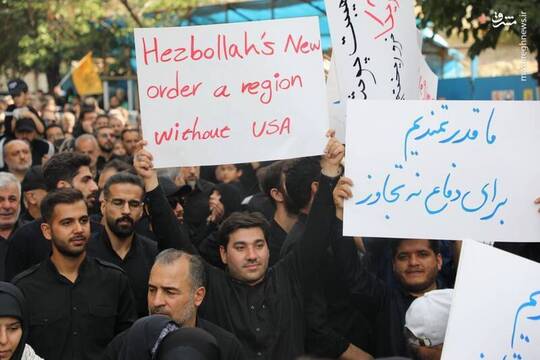 Hezbollah's New
order a region
without USA
ما قدرتمندیم
برای دفاع نه تجاوز
مشرق
mashreghnews.ir